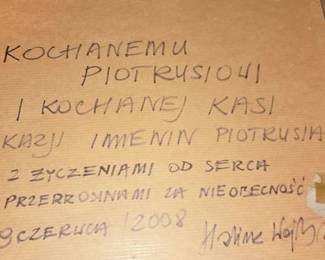 KOCHANEMU
PIOTRUSIOWI
I KOCHANEJ KASI
KAZJI IMIENIN PIOTRUSIA
Z ŻYCZENIAMI OD SERCA
PRZEPROSINAMI ZA NIEOBECNOŚĆ
9 CZERWCA '2008 Halina